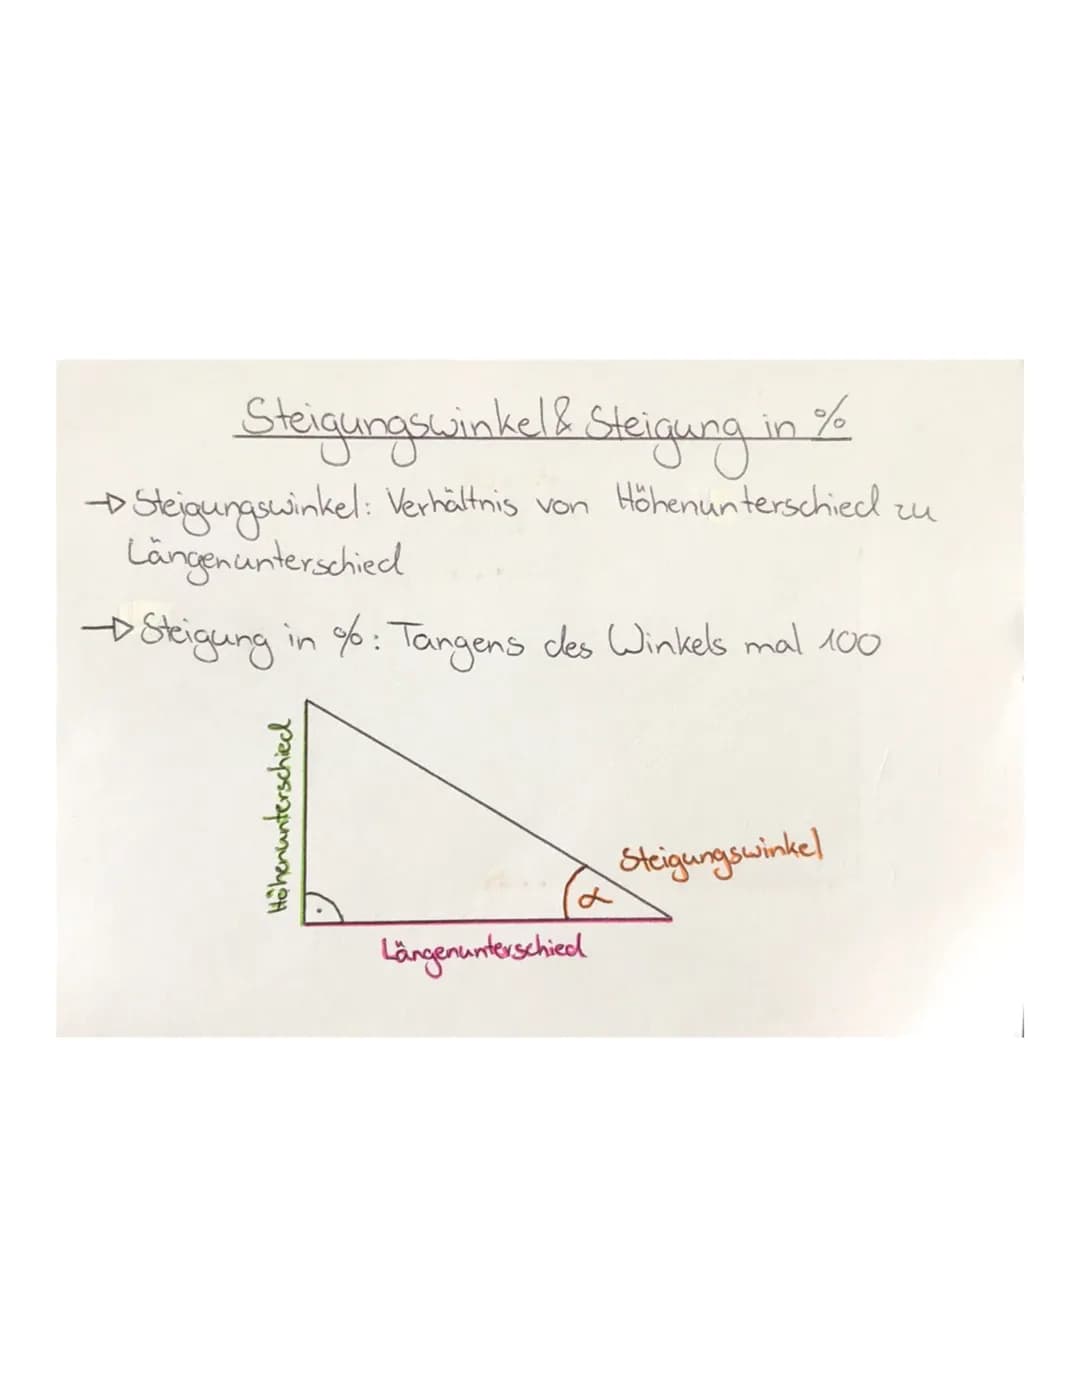 Steigungswinkel & Steigung in %
→ Steigungswinkel: Verhältnis von Höhenunterschied zu
Längenunterschied
→ Steigung in %: Tangens des Winkels mal 100
Höhenunterschied
Steigungswinkel
α
Längenunterschied